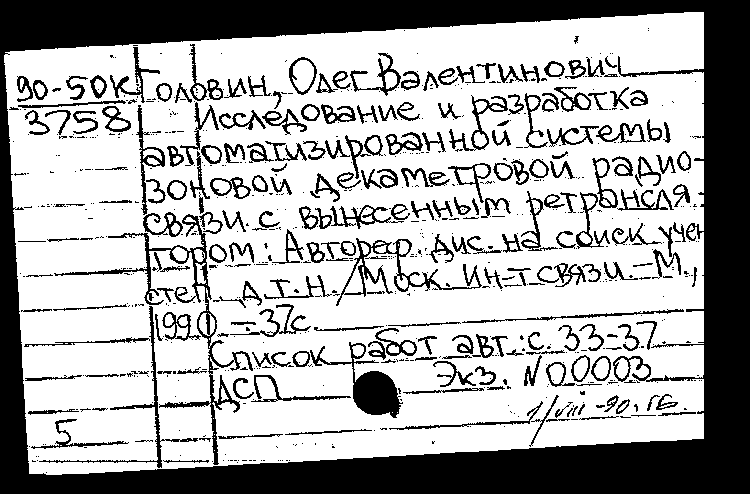 90-50К Головин, Олег Валентинович
3758 Исследование и разработка
автоматизированной системы
зоновой декаметровой радио-
связи с вынесенным ретрансля-
тором: Автореф. дис. на соиск учен
степ. д.т.н./Моск. ин-т связи.-М.,
1990.-37с.
Список работ авт.: с. 33-37.
ДСП Экз. N00003
1/viii-90.
5